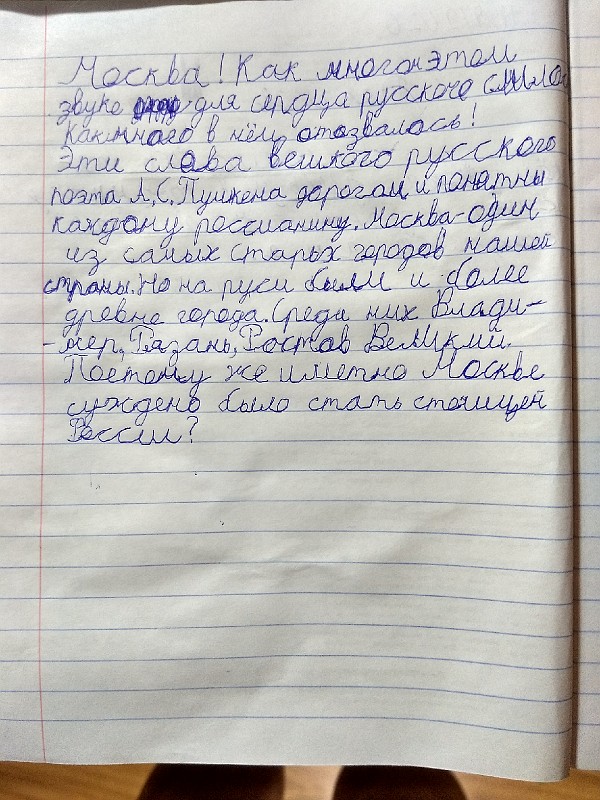 Москва! Как многон этом
звуке для сердца русского слилось
Как много в нём отозвалось!
Эти слова великого русского
поэта А.С. Пушкена дороган и понятны
каждому россианину. Москва-один
из самых старых городов нашей
страны. Но на руси были и более
древне города. Среди них Влади-
-мер, Рязань, Ростов Великий.
Поетому же именно Москве
суждено было стать столицей
России?